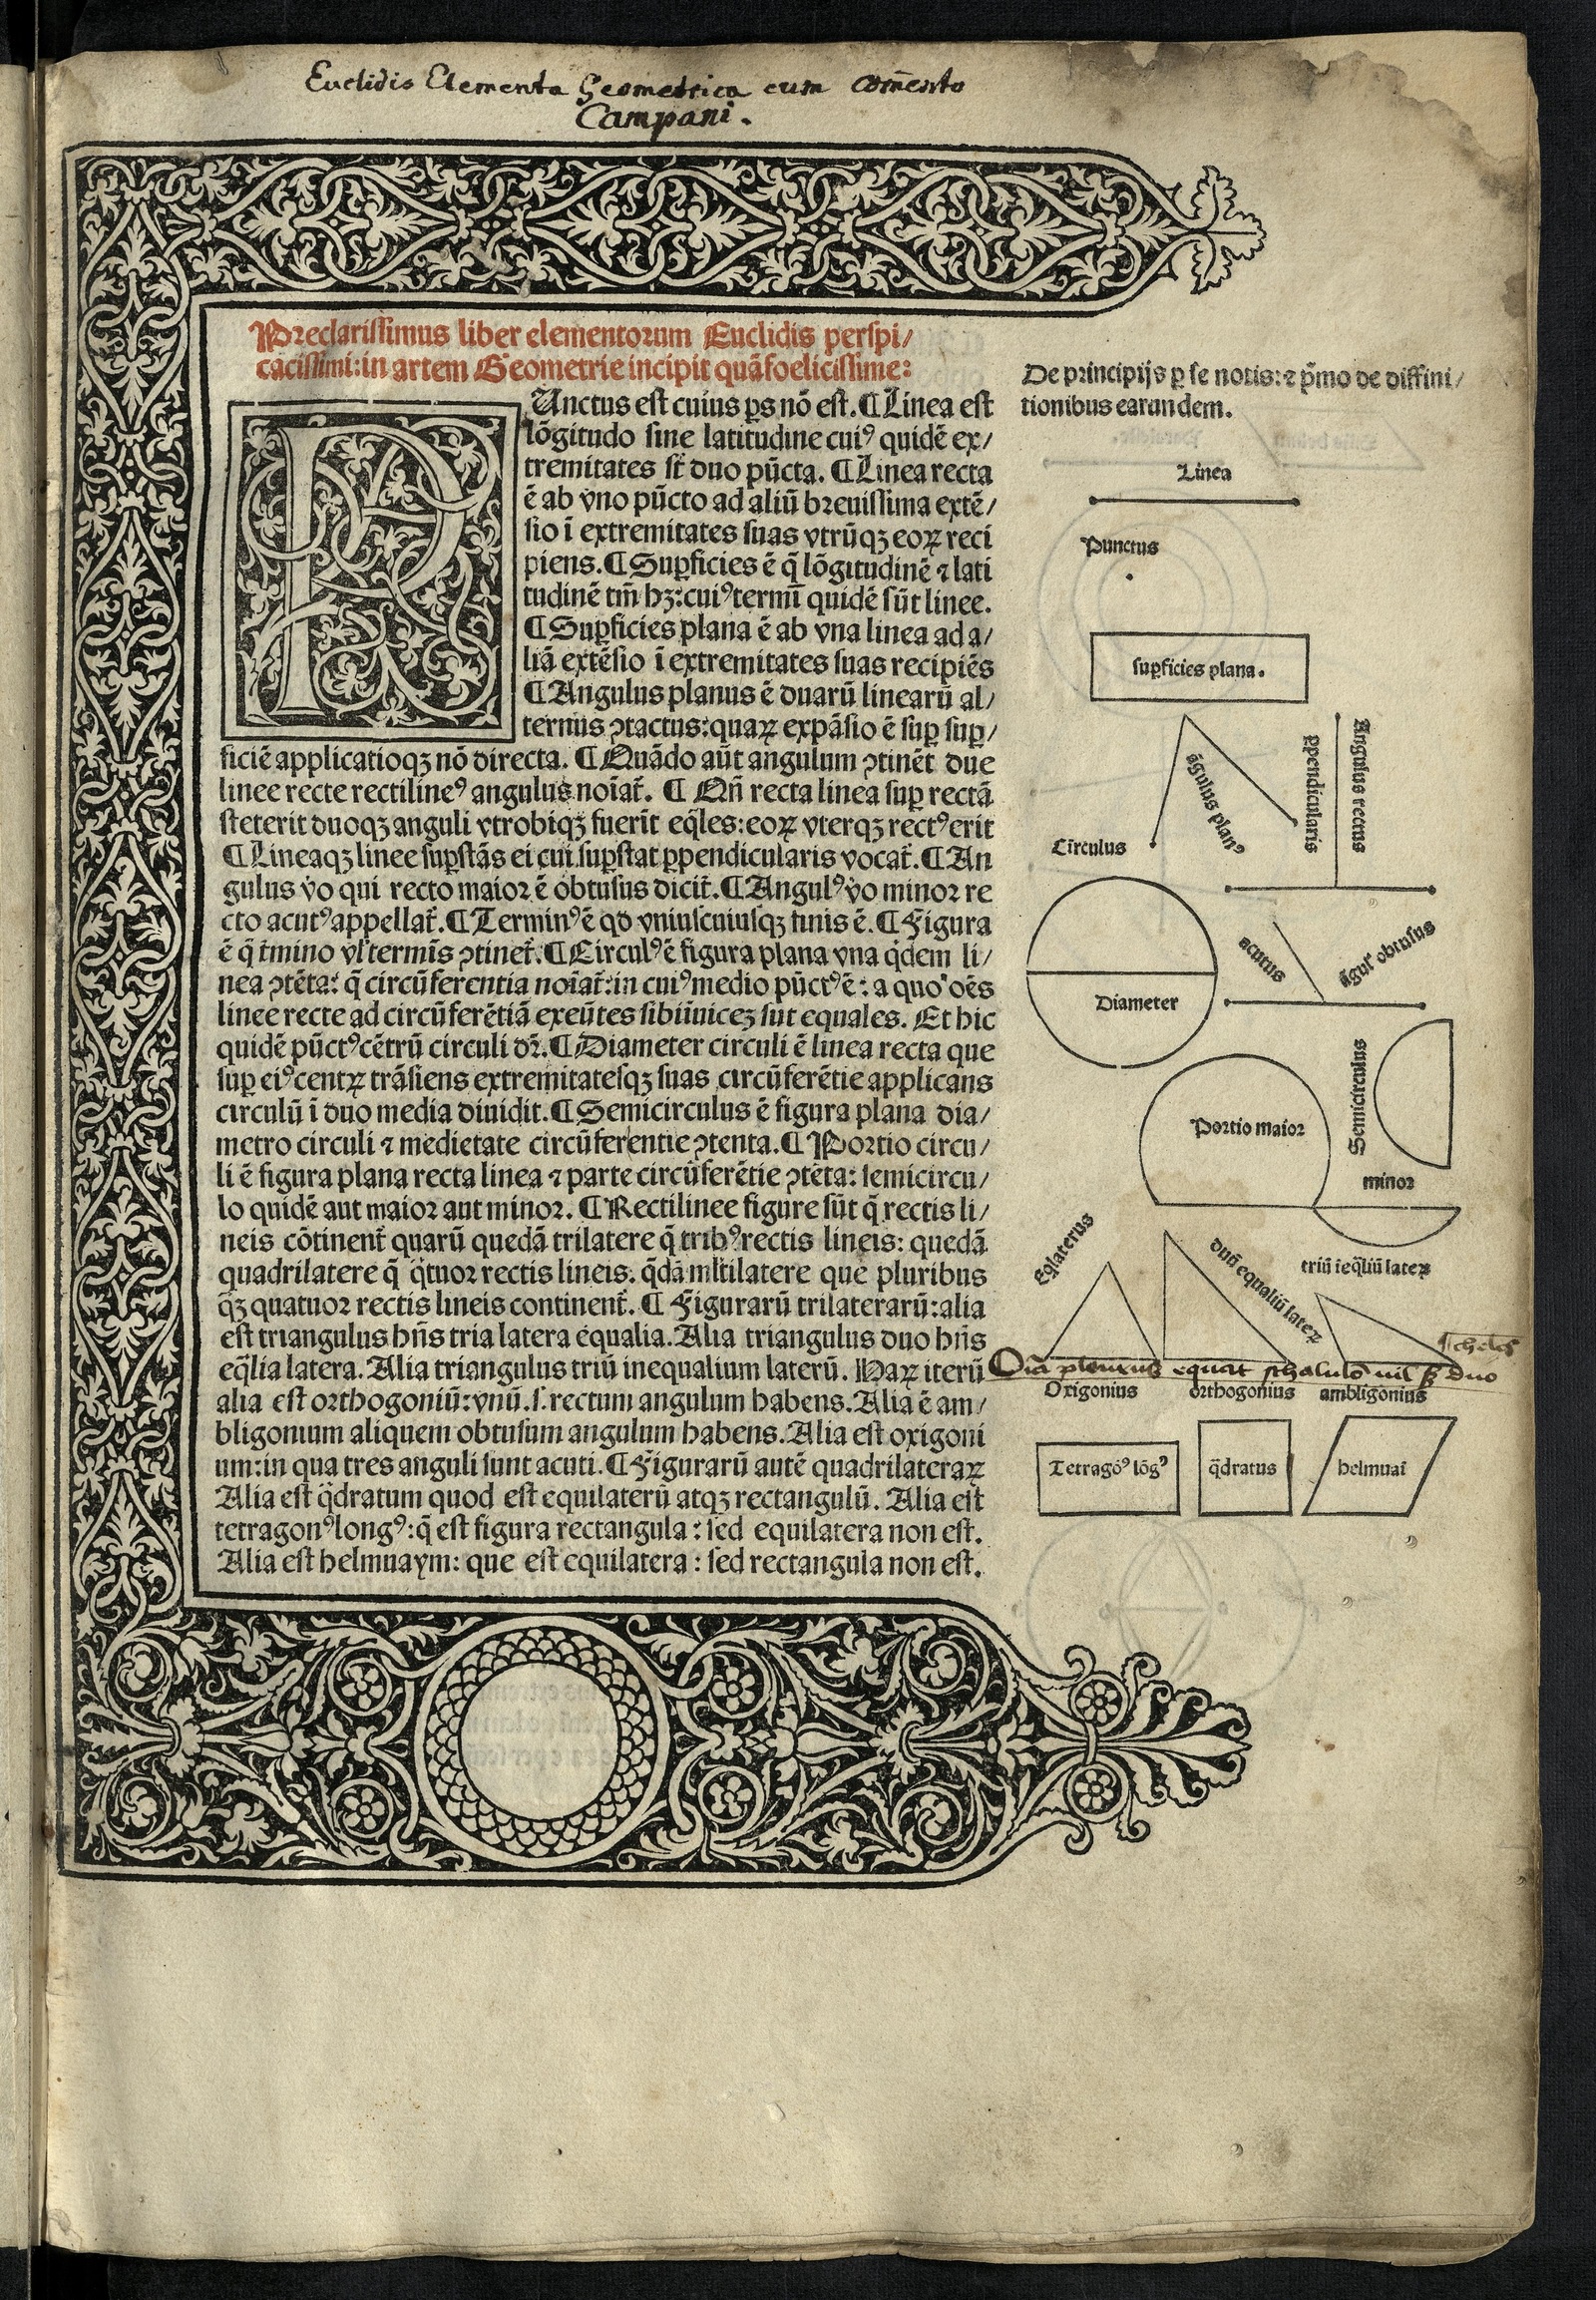 Euclidis Elementa Geometrica cum com̄ento
Campani.
Preclarissimus liber elementorum Euclidis perspi/
cacissimi: in artem Geometrie incipit quā foelicissime:
PUnctus est cuius ꝑs nō est. ¶ Linea est
lōgitudo sine latitudine cuiꝰ quidē ex/
tremitates st̄ duo pūcta. ¶ Linea recta
ē ab vno pūcto ad aliū breuissima extē/
sio ī extremitates suas vtrūqꝫ eoꝝ reci
piens. ¶ Suꝑficies ē q̄ lōgitudinē ⁊ lati
tudinē tm̄ hꝫ: cuiꝰ termī quidē sūt linee.
¶ Suꝑficies plana ē ab vna linea ad a/
liā extēsio ī extremitates suas recipiēs
¶ Angulus planus ē duarū linearū al/
ternus ꝯtactus: quaꝝ expāsio ē suꝑ suꝑ/
ficiē applicatioqꝫ nō directa. ¶ Quādo aūt angulum ꝯtinēt due
linee recte rectilineꝰ angulus noīat̄. ¶ Qn̄ recta linea suꝑ rectā
steterit duoqꝫ anguli vtrobiqꝫ fuerīt eq̄les: eoꝝ vterqꝫ rectꝰ erit
¶ Lineaqꝫ linee suꝑstās ei cui suꝑstat ꝑpendicularis vocat̄. ¶ An
gulus v̄o qui recto maior ē obtusus dicit̄. ¶ Angulꝰ v̄o minor re
cto acutꝰ appellat̄. ¶ Terminꝰ ē qd̄ vniuscuiusqꝫ finis ē. ¶ Figura
ē q̄ t̄mino vl̓ termīs ꝯtinet̄. ¶ Circulꝰ ē figura plana vna q̇dem li/
nea ꝯtēta: q̄ circūferentia noīat̄: in cuiꝰ medio pūctꝰ ē: a quo oēs
linee recte ad circūferētiā exeūtes sibiinuiceꝫ sūt equales. Et hic
quidē pūctꝰ cētrū circuli dr̄. ¶ Diameter circuli ē linea recta que
suꝑ eiꝰ centꝝ trāsiens extremitatesqꝫ suas circūferētie applicans
circulū ī duo media diuidit. ¶ Semicirculus ē figura plana dia/
metro circuli ⁊ medietate circūferentie ꝯtenta. ¶ Portio circu/
li ē figura plana recta linea ⁊ parte circūferētie ꝯtēta: semicircu/
lo quidē aut maior aut minor. ¶ Rectilinee figure sūt q̄ rectis li/
neis cōtinent̄ quarū quedā trilatere q̄ tribꝰ rectis lineis: quedā
quadrilatere q̄ q̈tuor rectis lineis. q̄dā mltilatere que pluribus
q̄ꝫ quatuor rectis lineis continent̄. ¶ Figurarū trilaterarū: alia
est triangulus hn̄s tria latera equalia. Alia triangulus duo hn̄s
eq̄lia latera. Alia triangulus triū inequalium laterū. Haꝝ iterū
alia est orthogoniū: vnū .s. rectum angulum habens. Alia ē am/
bligonium aliquem obtusum angulum habens. Alia est oxigoni
um: in qua tres anguli sunt acuti. ¶ Figurarū autē quadrilateraꝝ
Alia est q̈dratum quod est equilaterū atqꝫ rectangulū. Alia est
tetragonꝰ longꝰ: q̄ est figura rectangula: sed equilatera non est.
Alia est helmuaym: que est equilatera: sed rectangula non est.
De principijs ꝑ se notis: ⁊ p̄mo de diffini/
tionibus earundem.
Linea
Punctus
suꝑficies plana.
āgulus planꝰ
ꝑpendicularis
Angulus rectus
Circulus
Diameter
acutus
āgul̓ obtusus
Portio maior
Semicirculus
minor
Eq̄laterus
duū equaliū lateꝝ
triū īeq̄liū lateꝝ
equat
duo
Oxigonius
orthogonius
ambligonius
Tetragōꝰ lōgꝰ
q̄dratus
helmuaī